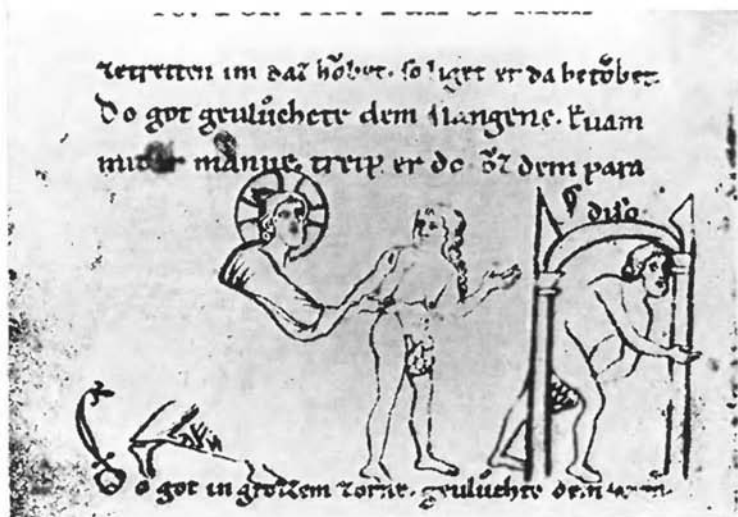 zetretten im daz hŏbet. so liget er da betŏbet.
Do got geulůchete dem slangene. Euam
manne. treip er do ŏz dem para
diso
Do got in grozzem zorne. geulůchte dem